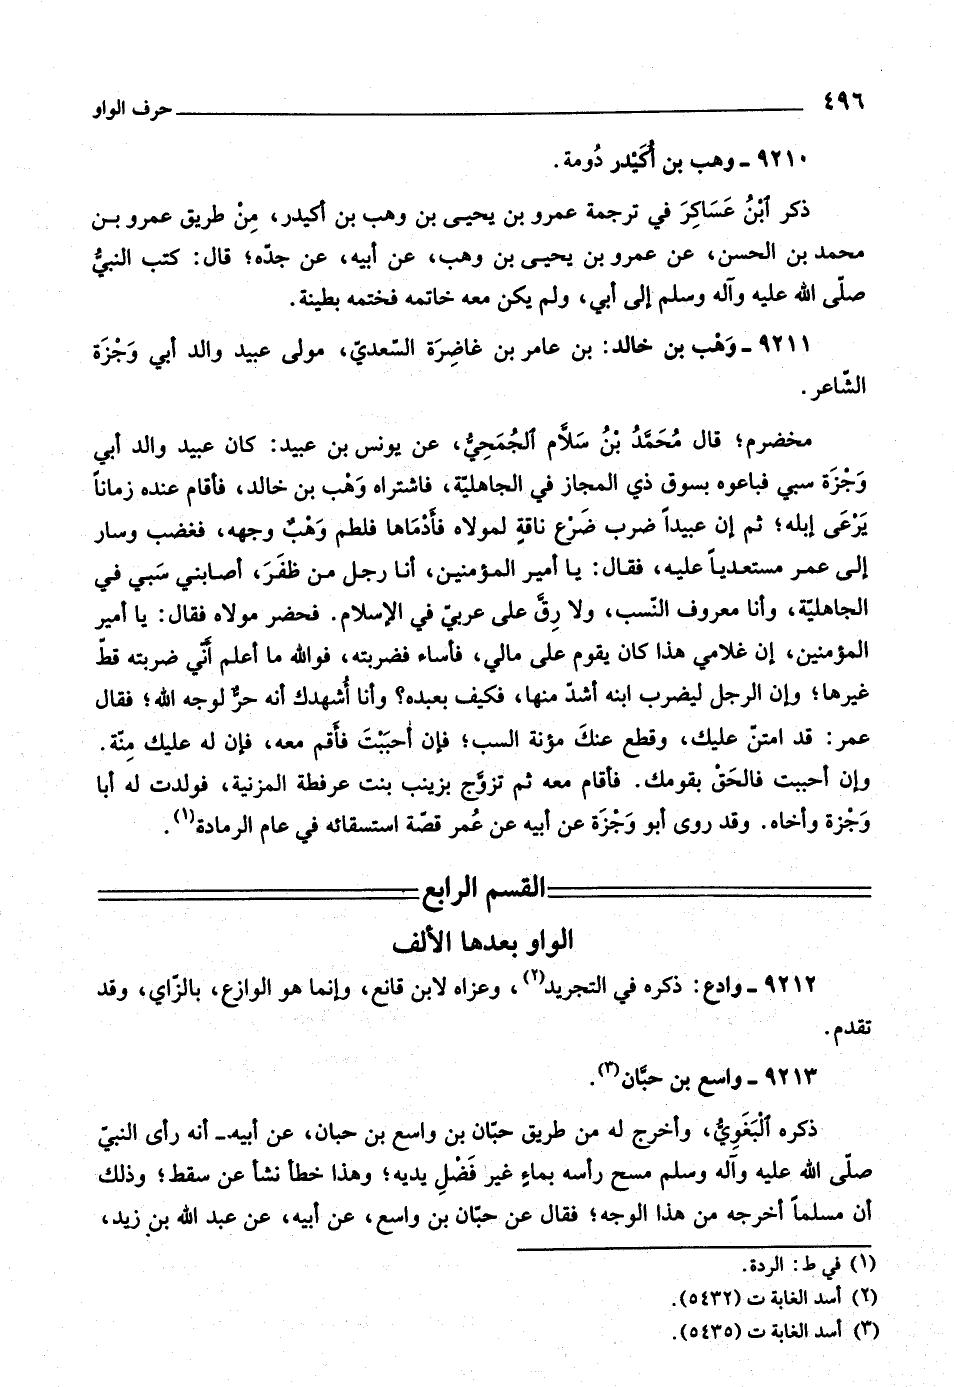 ٤٩٦ حرف الواو
٩٢١٠ ـ وهب بن أُكَيْدر دُومة.
ذكر ٱبْنُ عَسَاكِرَ في ترجمة عمرو بن يحيى بن وهب بن أكيدر، مِنْ طريق عمرو بـن
محمد بن الحسن، عن عمرو بن يحيـى بن وهب، عن أبيه، عن جدّه؛ قال: كتب النبيُّ
صلّى الله عليه وآله وسلم إلى أبي، ولم يكن معه خاتمه فختمه بطينة.
٩٢١١ ـ وَهْب بن خالد: بن عامر بن غاضِرَة السّعديّ، مولى عبيد والد أبي وَجْزَة
الشّاعر.
مخضرم؛ قال مُحَمَّدُ بْنُ سَلَّام ٱلجُمَحِيُّ، عن يونس بن عبيد: كان عبيد والد أبي
وَجْزَة سبي فباعوه بسوق ذي المجاز في الجاهليّة، فاشتراه وَهْب بن خالد، فأقام عنده زماناً
يَرْعَى إبله؛ ثم إن عبيداً ضرب ضَرْع ناقةٍ لمولاه فأَدْمَاها فلطم وَهْبٌ وجهه، فغضب وسار
إلى عمر مستعدياً عليه، فقال: يا أمير المؤمنين، أنا رجل من ظفَرَ، أصابني سَبي في
الجاهليّة، وأنا معروف النّسب، ولا رِقَّ على عربيّ في الإسلام. فحضر مولاه فقال: يا أمير
المؤمنين، إن غلامي هذا كان يقوم على مالي، فأساء فضربته، فوالله ما أعلم أَنّي ضربته قطّ
غيرها؛ وإن الرجل ليضرب ابنه أشدّ منها، فكيف بعبده؟ وأنا أُشهدك أنه حرٌّ لوجه الله؛ فقال
عمر: قد امتنّ عليك، وقطع عنكَ مؤنة السب؛ فإن أحبَبْتَ فأَقم معه، فإن له عليك مِنّة.
وإن أحببت فالحَقْ بقومك. فأقام معه ثم تزوَّج بزينب بنت عرفطة المزنية، فولدت له أبا
وَجْزة وأخاه. وقد روى أبو وَجْزَة عن أبيه عن عُمر قصّة استسقائه في عام الرمادة(١).
القسم الرابع
الواو بعدها الألف
٩٢١٢ ـ وادع: ذكره في التجريد(٢)، وعزاه لابن قانع، وإنما هو الوازع، بالزّاي، وقد
تقدم.
٩٢١٣ ـ واسع بن حبَّان(٣).
ذكره ٱلْبَغَوِيُّ، وأخرج له من طريق حبّان بن واسع بن حبان، عن أبيه ـ أنه رأى النبيّ
صلّى الله عليه وآله وسلم مسح رأسه بماءٍ غير فَضْلِ يديه؛ وهذا خطأ نشأ عن سقط؛ وذلك
أن مسلماً أخرجه من هذا الوجه؛ فقال عن حبّان بن واسع، عن أبيه، عن عبد الله بن زيد،
(١) في ط: الردة.
(٢) أسد الغابة ت (٥٤٣٢).
(٣) أسد الغابة ت (٥٤٣٥).